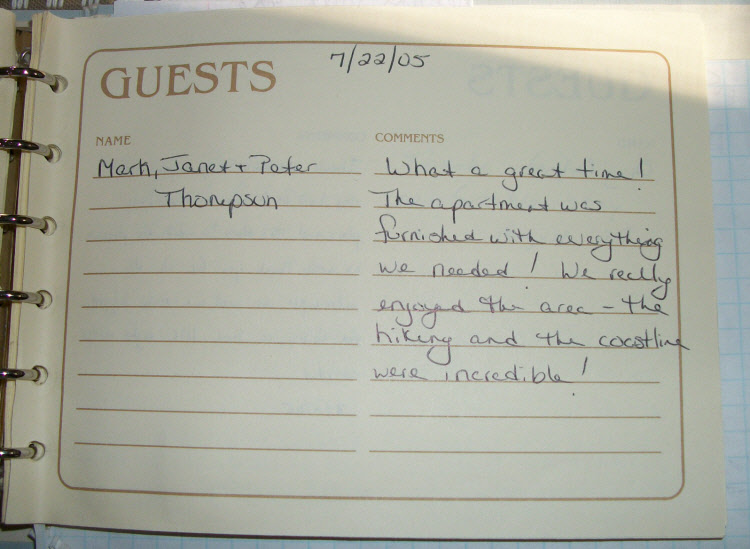 GUESTS
7/22/05
NAME
COMMENTS
Mark, Janet + Peter
Thompson
What a great time!
The apartment was
furnished with everything
we needed! We really
enjoyed the area - the
hiking and the coastline
were incredible!